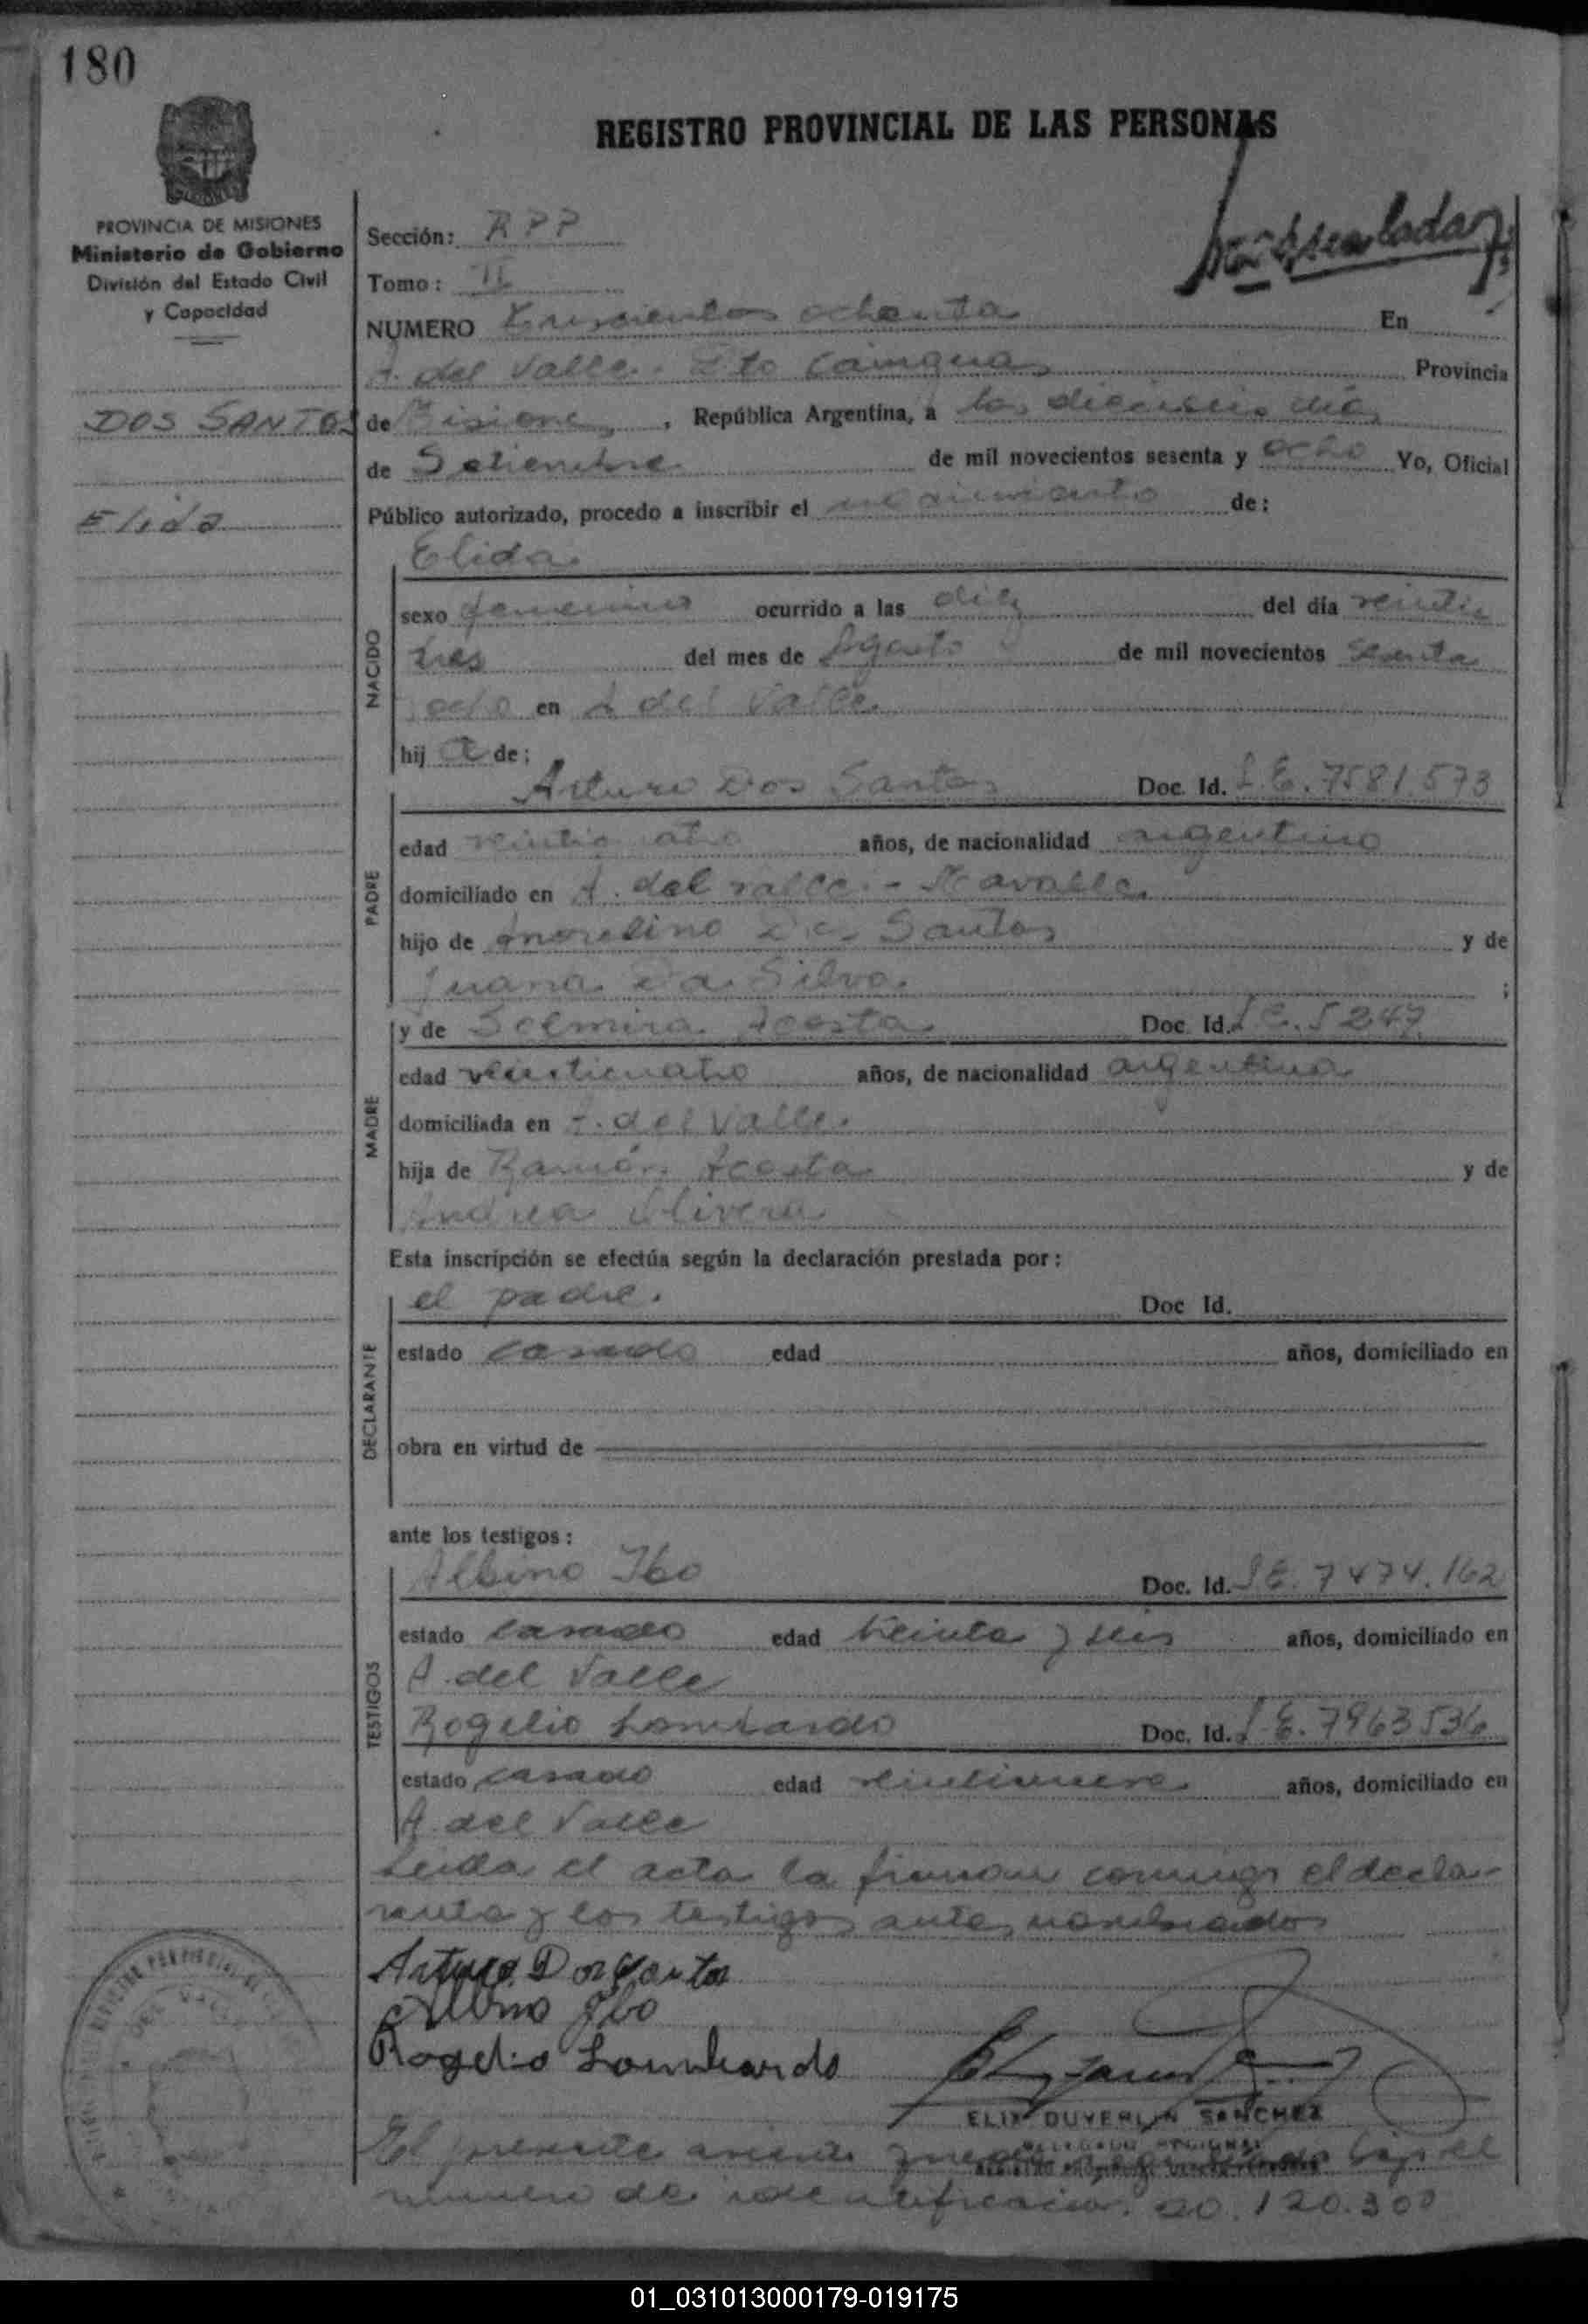 180
REGISTRO PROVINCIAL DE LAS PERSONAS
PROVINCIA DE MISIONES
Ministerio de Gobierno
División del Estado Civil
y Capacidad
DOS SANTOS
Elida
Sección: RPP
Tomo: II
NUMERO Trescientos ochenta En
A. del Valle. Dto Cainguas Provincia
de Misiones, República Argentina, a los dieciseis días
de Setiembre de mil novecientos sesenta y ocho Yo, Oficial
Público autorizado, procedo a inscribir el nacimiento de:
NACIDO
Elida
sexo femenino ocurrido a las diez del día veinti
tres del mes de Agosto de mil novecientos sesenta
ocho en A del Valle
hij a de:
PADRE
Arturo Dos Santos Doc. Id. L.E. 7581.573
edad años, de nacionalidad argentino
domiciliado en A. del Valle -
hijo de Dos Santos y de
Juana Da Silva ;
MADRE
y de Selmira Acosta Doc. Id. L.C. 5247
edad veinticuatro años, de nacionalidad argentina
domiciliada en A. del Valle
hija de Ramón Acosta y de
Andrea Olivera
Esta inscripción se efectúa según la declaración prestada por:
DECLARANTE
el padre. Doc Id.
estado casado edad años, domiciliado en
obra en virtud de
ante los testigos:
TESTIGOS
Albino Ibo Doc. Id. L.E. 7474.162
estado casado edad treinta y seis años, domiciliado en
A. del Valle
Rogelio Lombardo Doc. Id. L.E. 7963536
estado casado edad veintinueve años, domiciliado en
A. del Valle
Leida el acta la firman conmigo el decla-
rante y los testigos antes nombrados
Arturo Dos Santos
Albino Ibo
Rogelio Lombardo
ELIX DUVERLIN SANCHEZ
DELEGADO REGIONAL
El presente asiento bajo el
numero de identificacion. 20.120.300
01_031013000179-019175